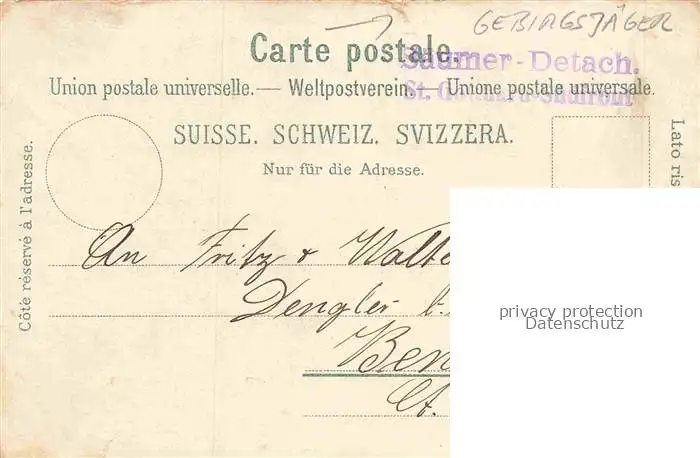 GEBIRGSJÄGER
Carte postale.
Säumer-Detach.
Union postale universelle. — Weltpostverein. — Unione postale universale.
St. Gotthard-Südfront
SUISSE. SCHWEIZ. SVIZZERA.
Nur für die Adresse.
Côté réservé à l'adresse.
Lato ris
An Fritz & Walte
Dengler b.
Ber
Ct.
privacy protection
Datenschutz